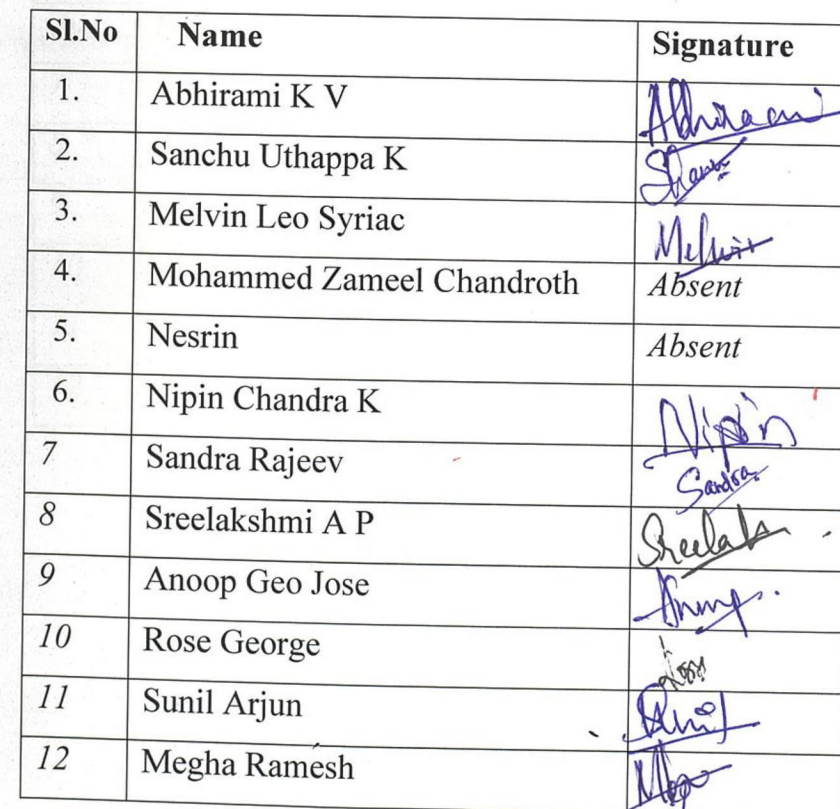 Sl.No Name Signature
1. Abhirami K V Abhirami
2. Sanchu Uthappa K
3. Melvin Leo Syriac Melvin
4. Mohammed Zameel Chandroth Absent
5. Nesrin Absent
6. Nipin Chandra K Nipin
7 Sandra Rajeev Sandra
8 Sreelakshmi A P
9 Anoop Geo Jose
10 Rose George
11 Sunil Arjun
12 Megha Ramesh